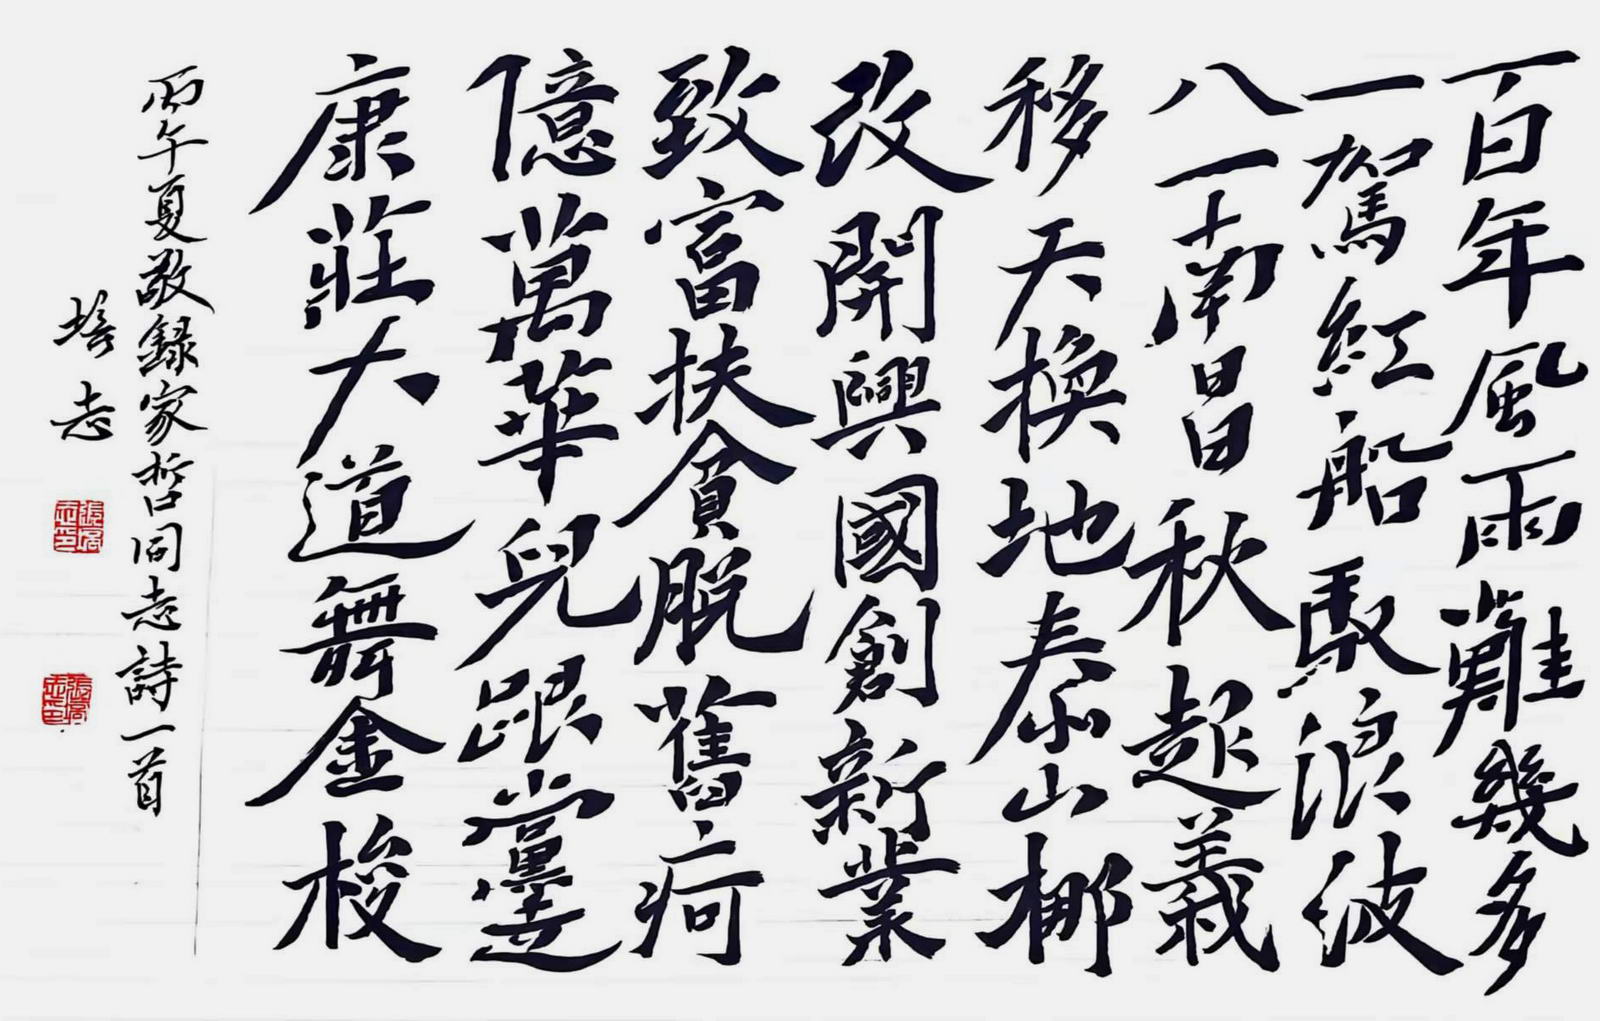 百年風雨難幾多
一駕紅船馭浪波
八一南昌秋起義
移天換地泰山梛
改開興國創新業
致富扶貧脫舊疴
億萬華兒跟黨走
康莊大道舞金梭
丙午夏敬録家哲同志詩一首
培志